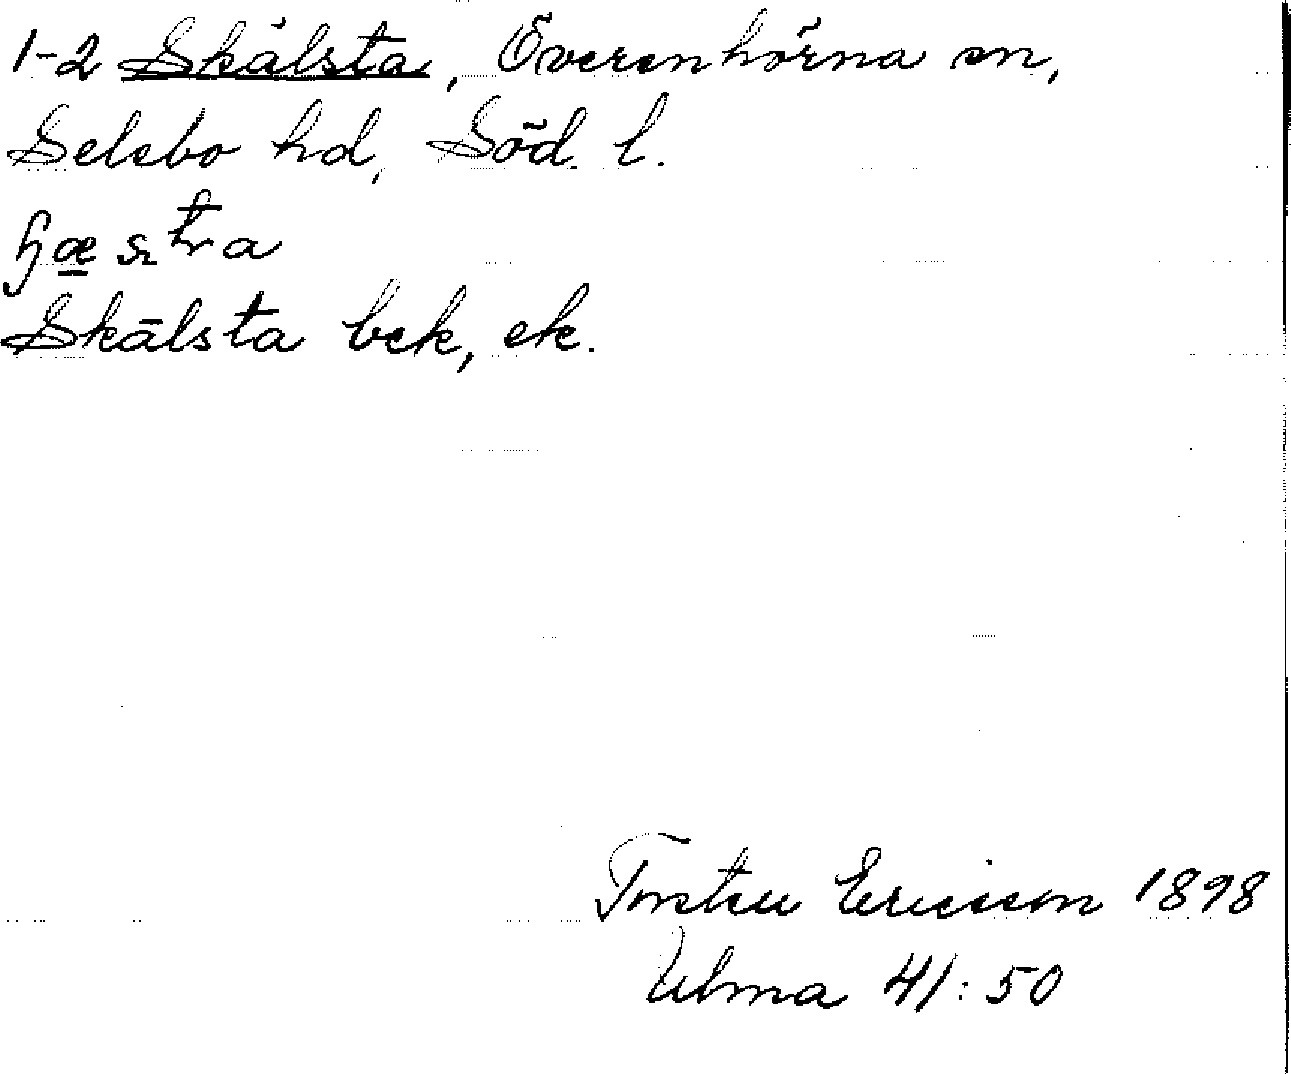 1-2 Skälsta, Överenhörna sn,
Selebo hd, Söd. l.
Skälsta bek, ek.
Torsten Ericsson 1898
Ulma 41:50